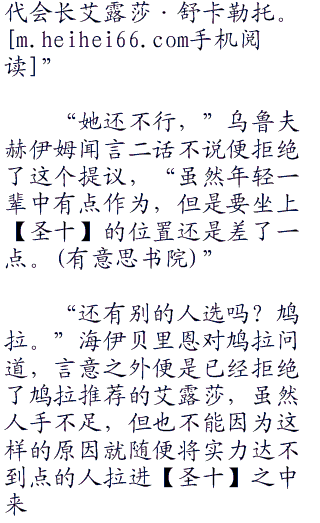 代会长艾露莎·舒卡勒托。
[m.heihei66.com手机阅
读]”
“她还不行，”乌鲁夫
赫伊姆闻言二话不说便拒绝
了这个提议，“虽然年轻一
辈中有点作为，但是要坐上
【圣十】的位置还是差了一
点。(有意思书院)”
“还有别的人选吗？鸠
拉。”海伊贝里恩对鸠拉问
道，言意之外便是已经拒绝
了鸠拉推荐的艾露莎，虽然
人手不足，但也不能因为这
样的原因就随便将实力达不
到点的人拉进【圣十】之中
来